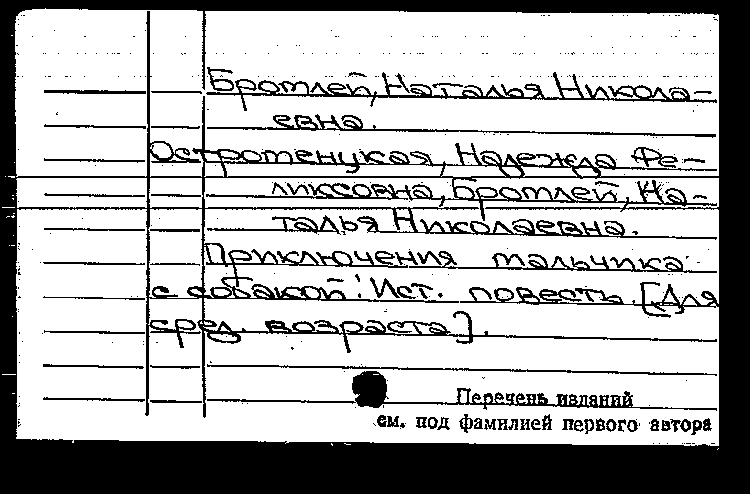 Бромлей, Наталья Никола-
евна.
Остроменцкая, Надежда Фе-
ликсовна, Бромлей, На-
талья Николаевна.
Приключения мальчика
с собакой: Ист. повесть. [Для
сред. возраста].
Перечень изданий
см. под фамилией первого автора